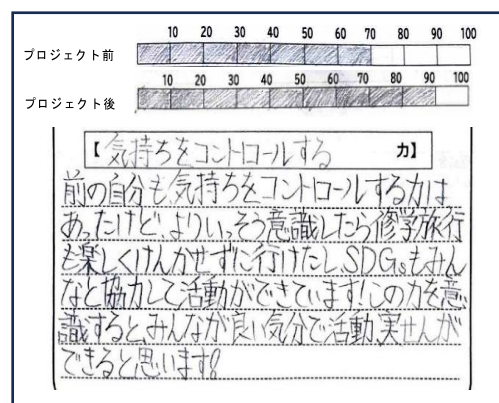 10 20 30 40 50 60 70 80 90 100
プロジェクト前
10 20 30 40 50 60 70 80 90 100
プロジェクト後
【気持ちをコントロールする 力】
前の自分も、気持ちをコントロールする力は
あったけど、よりいっそう意識したら修学旅行
も楽しくけんかせずに行けたし、SDGsもみん
なと協力して活動ができています!この力を意
識すると、みんなが良い気分で活動、実せんが
できると思います!